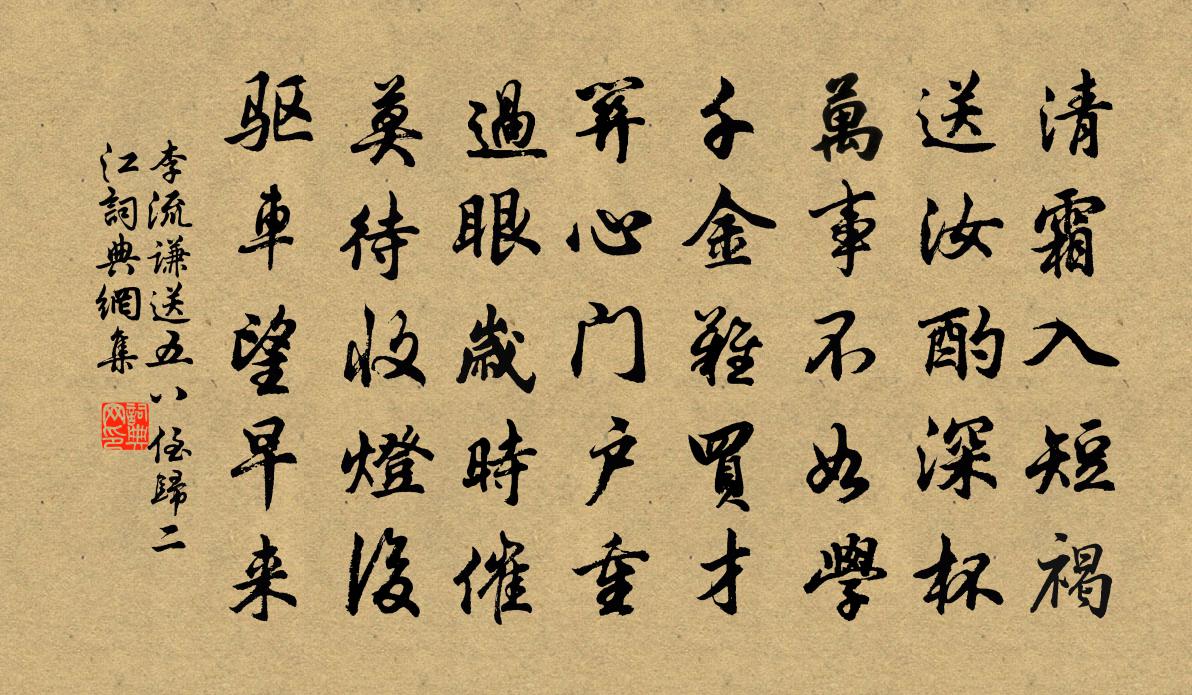 清霜入短褐
送汝酌深杯
萬事不如學
千金難買才
關心门户重
過眼歲時催
莫待收燈後
驱車望早来
李流謙送五八侄歸二
江詞典網集
詞典
网印